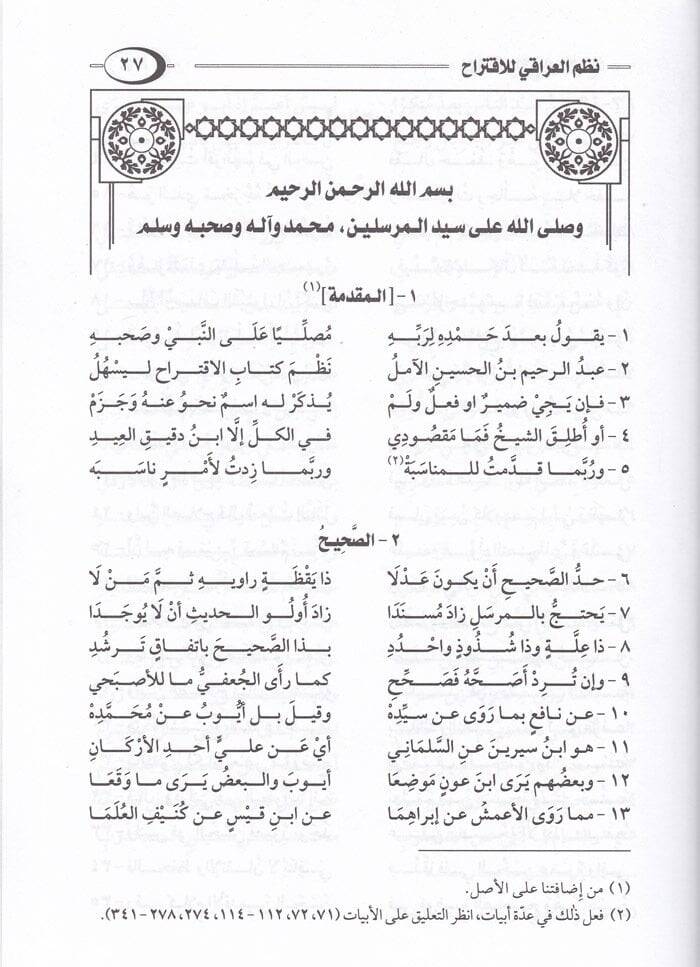 نظم العراقي للاقتراح
٢٧
بسم الله الرحمن الرحيم
وصلى الله على سيد المرسلين، محمد وآله وصحبه وسلم
١ - [المقدمة] (١)
١ - يقولُ بعدَ حَمْدِهِ لِرَبِّهِ مُصلِّيًا عَلَى النَّبي وصَحبهِ
٢ - عبدُ الرحيم بنُ الحسينِ الآملُ نَظْمَ كتابِ الاقتراح ليسْهُلُ
٣ - فإن يَجِيْ ضميرٌ او فعلٌ ولَمْ يُذكَرْ له اسمٌ نحوُ عنهُ وَجَزَمْ
٤ - أو أُطلِقَ الشيخُ فَمَا مَقصُودِي في الكلِّ إلا ابنُ دقيقِ العِيدِ
٥ - ورُبَّما قدَّمتُ للمناسَبَةْ (٢) وربَّما زِدتُ لأَمْرٍ ناسَبَه
٢ - الصَّحِيحُ
٦ - حدُّ الصَّحيحِ أنْ يكونَ عَدْلَا ذا يَقْظَةٍ راويهِ ثمَّ مَنْ لَا
٧ - يَحتجُّ بالمرسَلِ زادَ مُسنَدَا زادَ أُولُو الحديثِ أنْ لَا يُوجَدَا
٨ - ذا عِلَّةٍ وذا شُذُوذٍ واحْدُدِ بذا الصَّحيحَ باتفاقٍ تَرشُدِ
٩ - وإن تُرِدْ أصَحَّهُ فَصَحِّحِ كما رأَى الجُعفيُّ ما للأصبَحي
١٠ - عن نافعٍ بما رَوَى عن سيِّدِهْ وقيلَ بل أيُّوبُ عنْ مُحَمَّدِهْ
١١ - هو ابنُ سيرينَ عنِ السَّلمَاني أيْ عَن عليٍّ أحدِ الأرْكَانِ
١٢ - وبعضُهم يَرَى ابنَ عونٍ مَوضِعَا أيوبَ والبعضُ يَرَى ما وَقَعَا
١٣ - مما رَوَى الأعمشُ عن إبراهِمَا عنِ ابنِ قيْسٍ عن كُنَيْفِ العُلَمَا
(١) من إضافتنا على الأصل.
(٢) فعل ذلك في عدّة أبيات، انظر التعليق على الأبيات (٧١، ٧٢، ١١٢ - ١١٤، ٢٧٤، ٢٧٨ - ٣٤١).